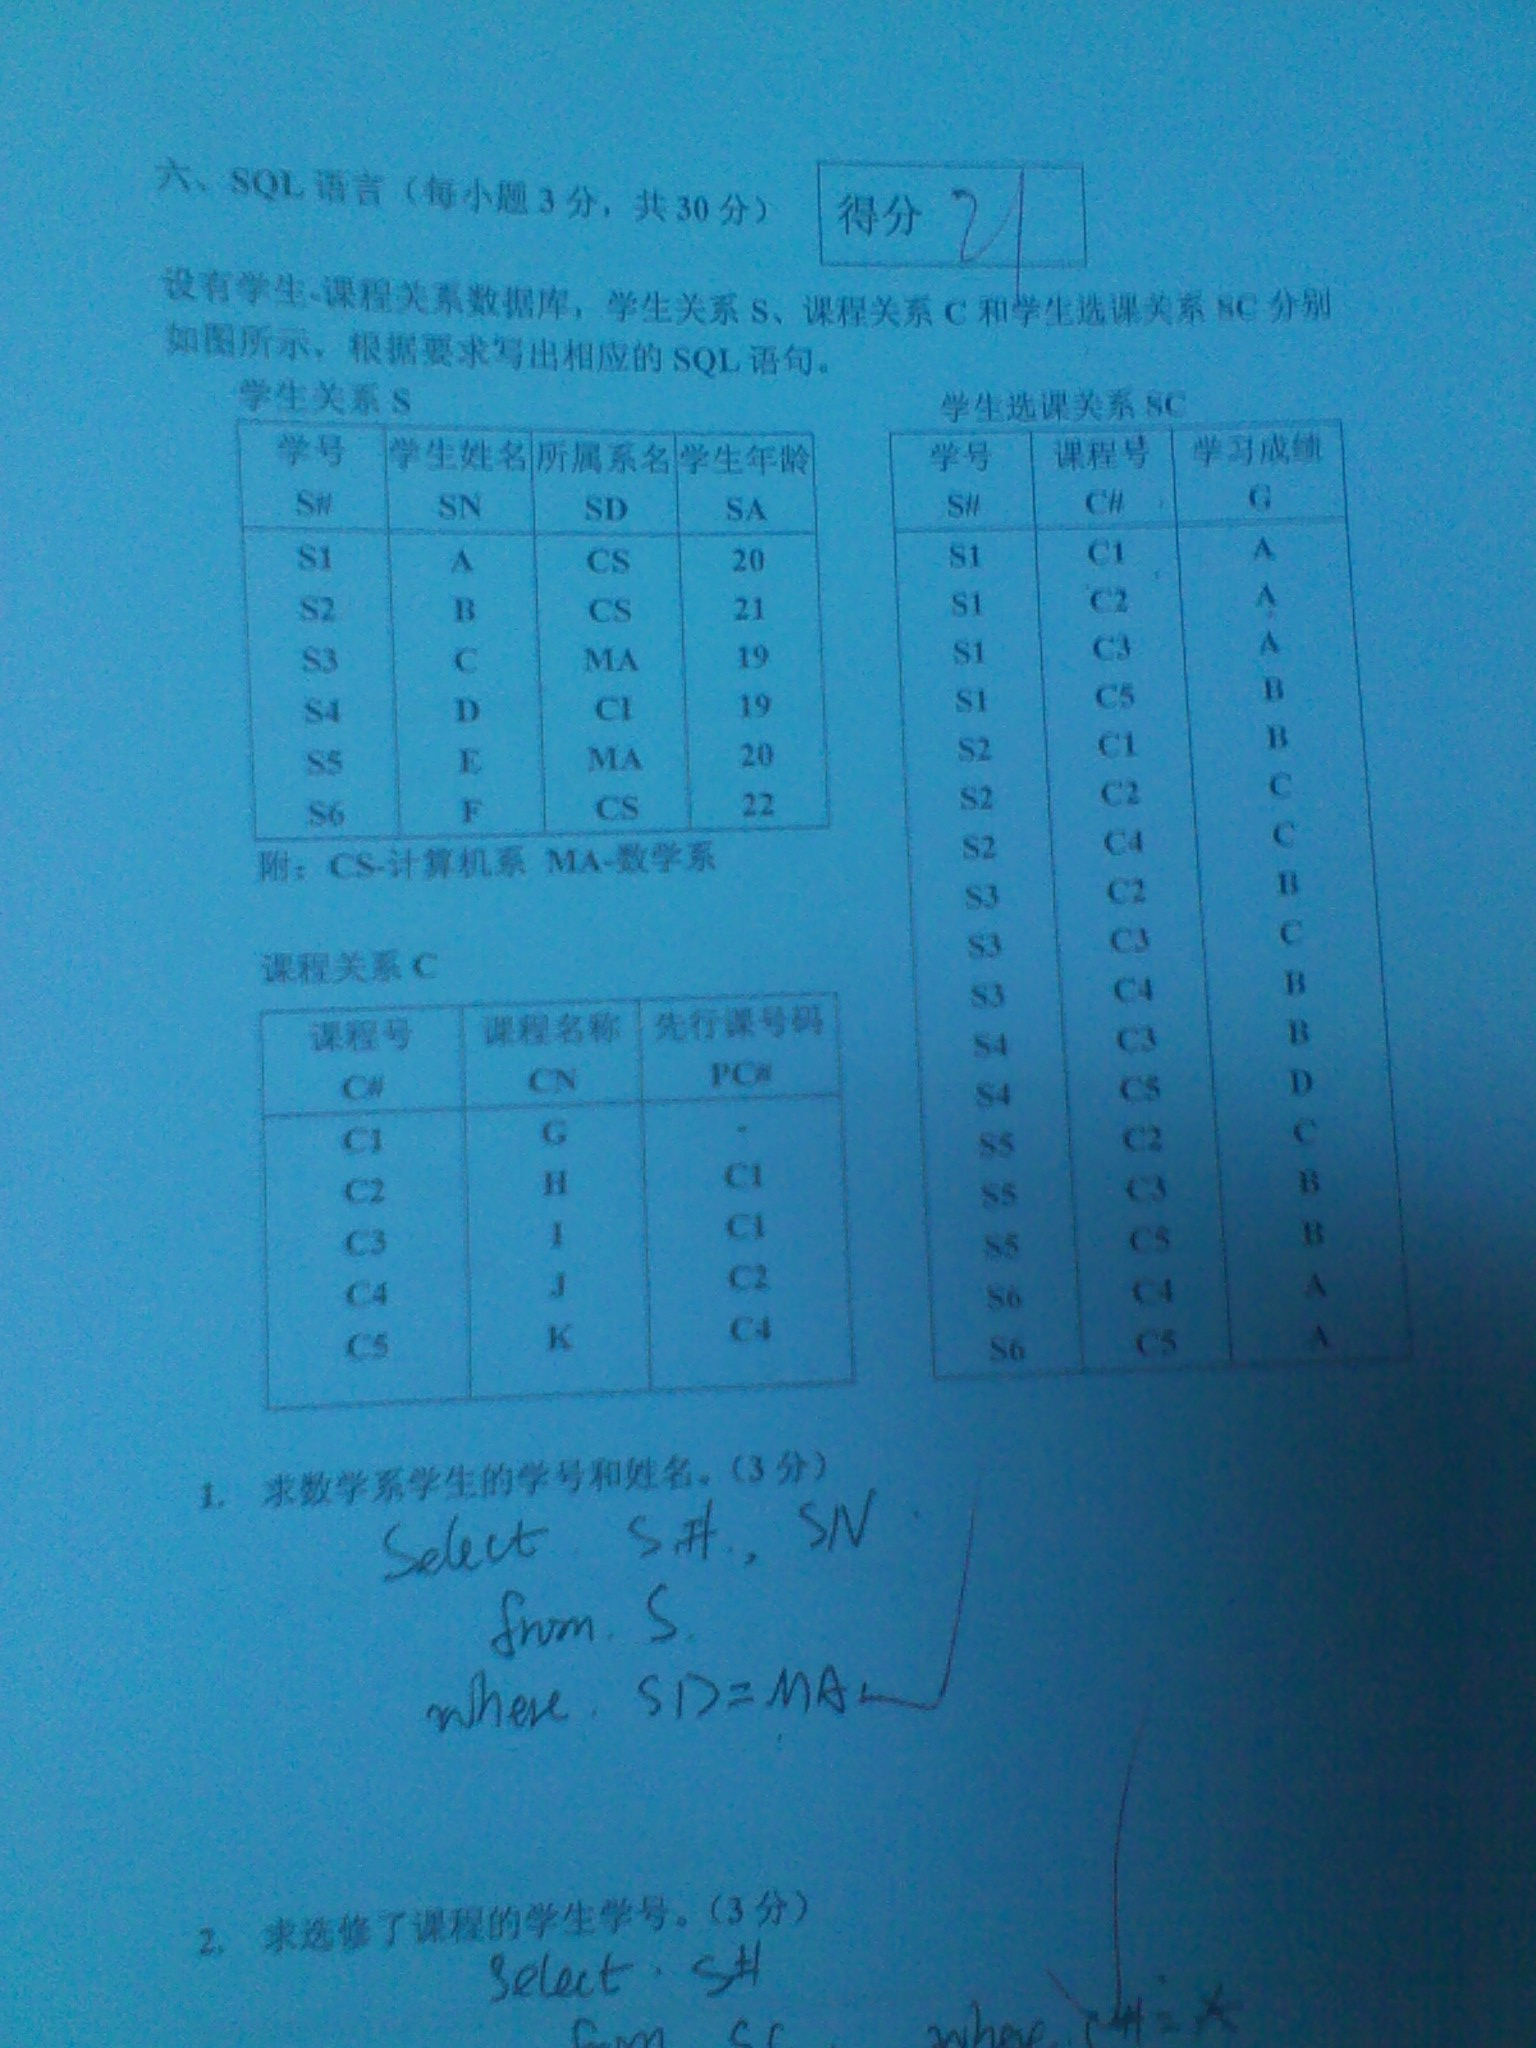 六、SQL 语言（每小题 3 分，共 30 分）
得分 21
设有学生-课程关系数据库，学生关系 S、课程关系 C 和学生选课关系 SC 分别
如图所示，根据要求写出相应的 SQL 语句。
学生关系 S
学号 学生姓名 所属系名 学生年龄
S# SN SD SA
S1 A CS 20
S2 B CS 21
S3 C MA 19
S4 D CI 19
S5 E MA 20
S6 F CS 22
附：CS-计算机系 MA-数学系
课程关系 C
课程号 课程名称 先行课号码
C# CN PC#
C1 G -
C2 H C1
C3 I C1
C4 J C2
C5 K C4
学生选课关系 SC
学号 课程号 学习成绩
S# C# G
S1 C1 A
S1 C2 A
S1 C3 A
S1 C5 B
S2 C1 B
S2 C2 C
S2 C4 C
S3 C2 B
S3 C3 C
S3 C4 B
S4 C3 B
S4 C5 D
S5 C2 C
S5 C3 B
S5 C5 B
S6 C4 A
S6 C5 A
1. 求数学系学生的学号和姓名。（3 分）
Select S#, SN
from S
where SD=MA
2. 求选修了课程的学生学号。（3 分）
Select S#
from SC where